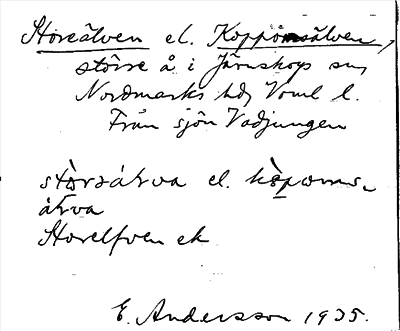 Storeälven el. Koppomsälven,
större å i Järnskogs sn,
Nordmarks hd, Vrml l.
Från sjön Vadjungen
stòrsäɫva el. kòpoms-
äɫva
Storelfven ek
E. Andersson 1935.